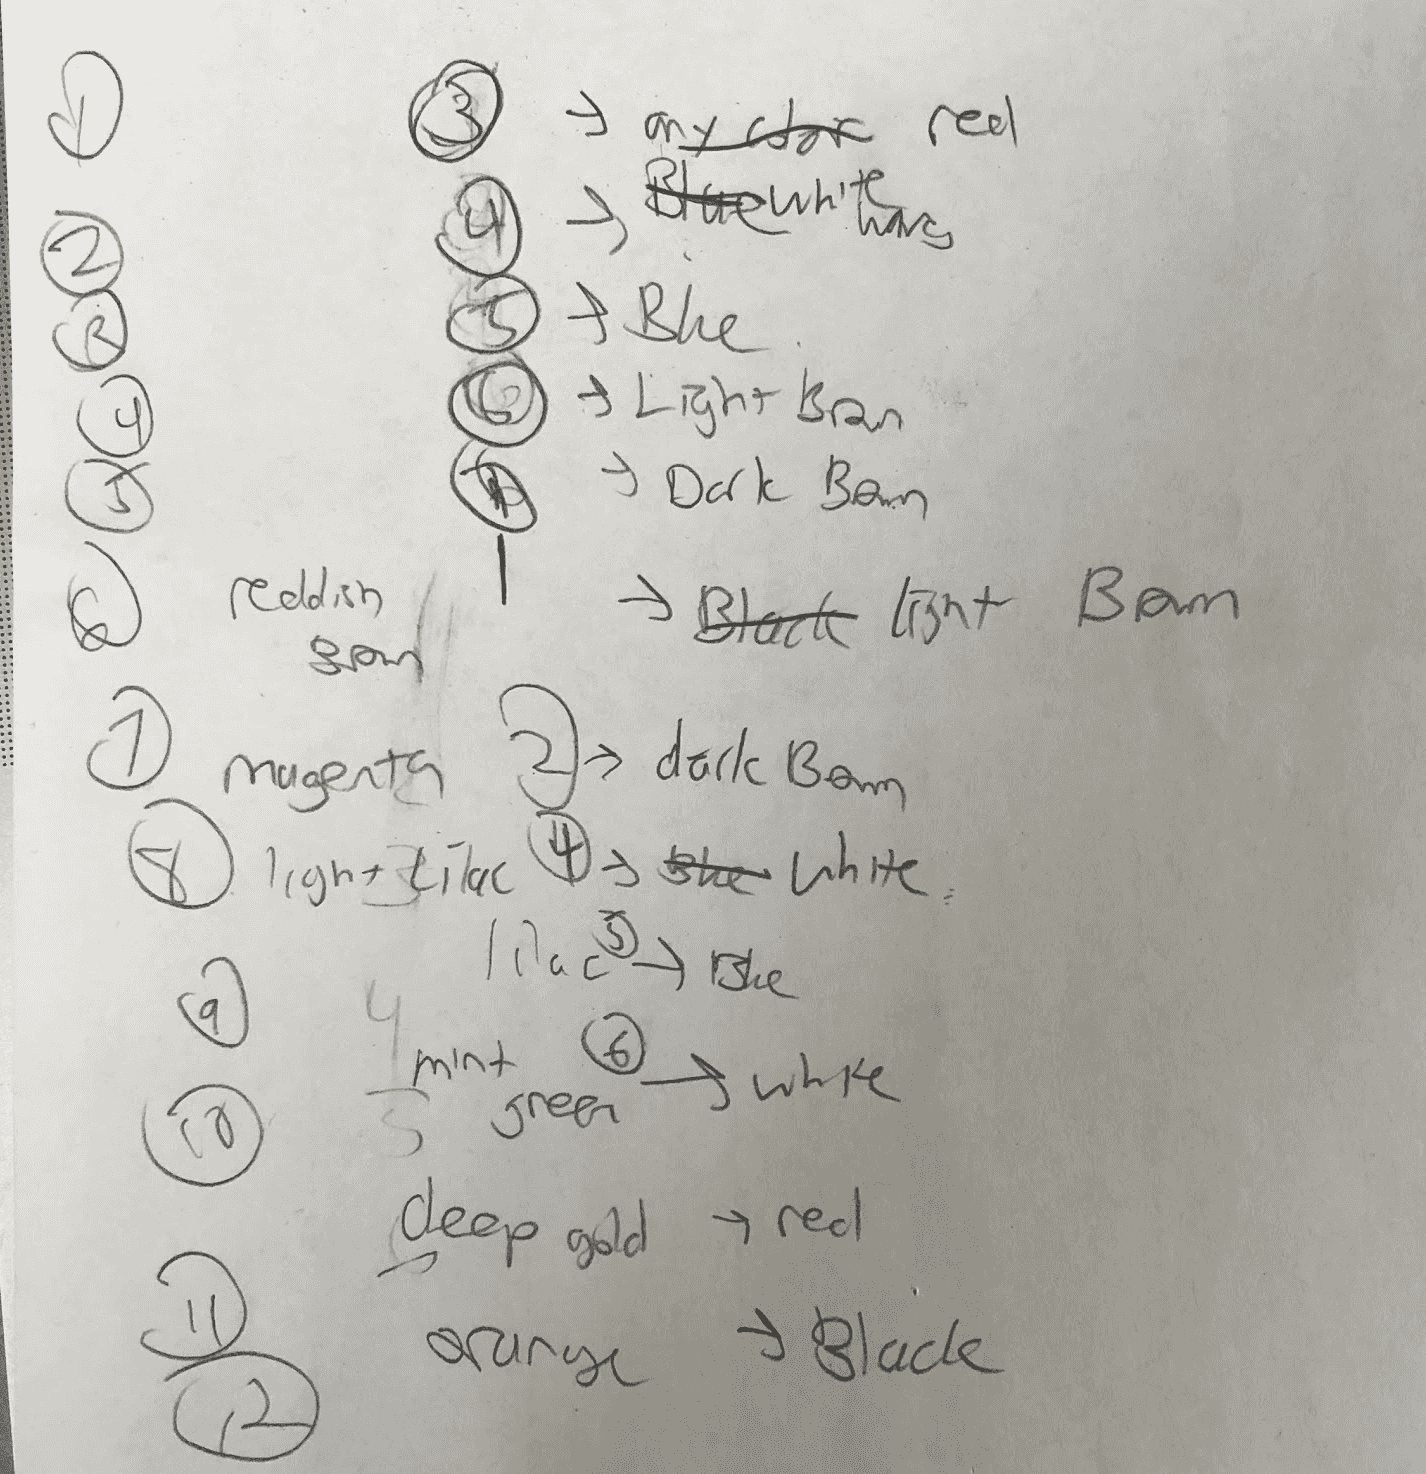 1
3 → any color red
4 → Blue white
hairs
2
5 → Blue
3
6 → Light Bron
4
→ Dark Bown
5
6 reddish → Black light Bown
brown
7 magenta 2 → dark Bown
8 light lilac 4 → Blue white
lilac 5 → Blue
9 4
mint 6 → white
green
10 5
deep gold → red
11
orange → Black
12